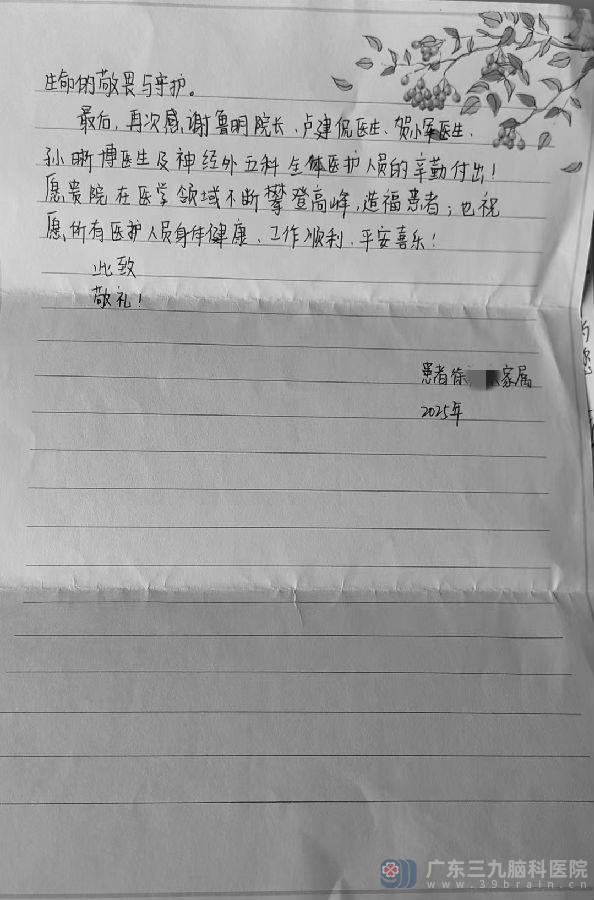 生命的敬畏与守护。
最后，再次感谢鲁明院长、卢建侃医生、贺小军医生、
孙晰博医生及神经外五科全体医护人员的辛勤付出！
愿贵院在医学领域不断攀登高峰，造福患者；也祝
愿所有医护人员身体健康、工作顺利、平安喜乐！
此致
敬礼！
患者徐 家属
2025年
广东三九脑科医院
www.39brain.cn